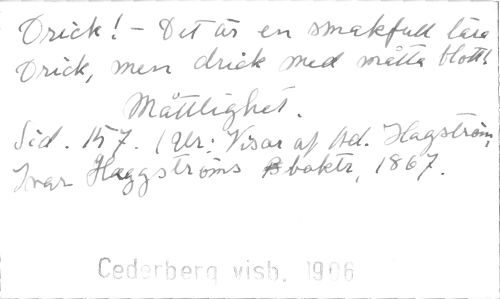 Drick! - Det är en smakfull lära
Drick, men drick med måtta blott!
Måttlighet.
Sid. 157. (Ur: Visor af Ad. Hagström,
Ivar Hæggströms boktr, 1867.
Cederberg visb. 1906